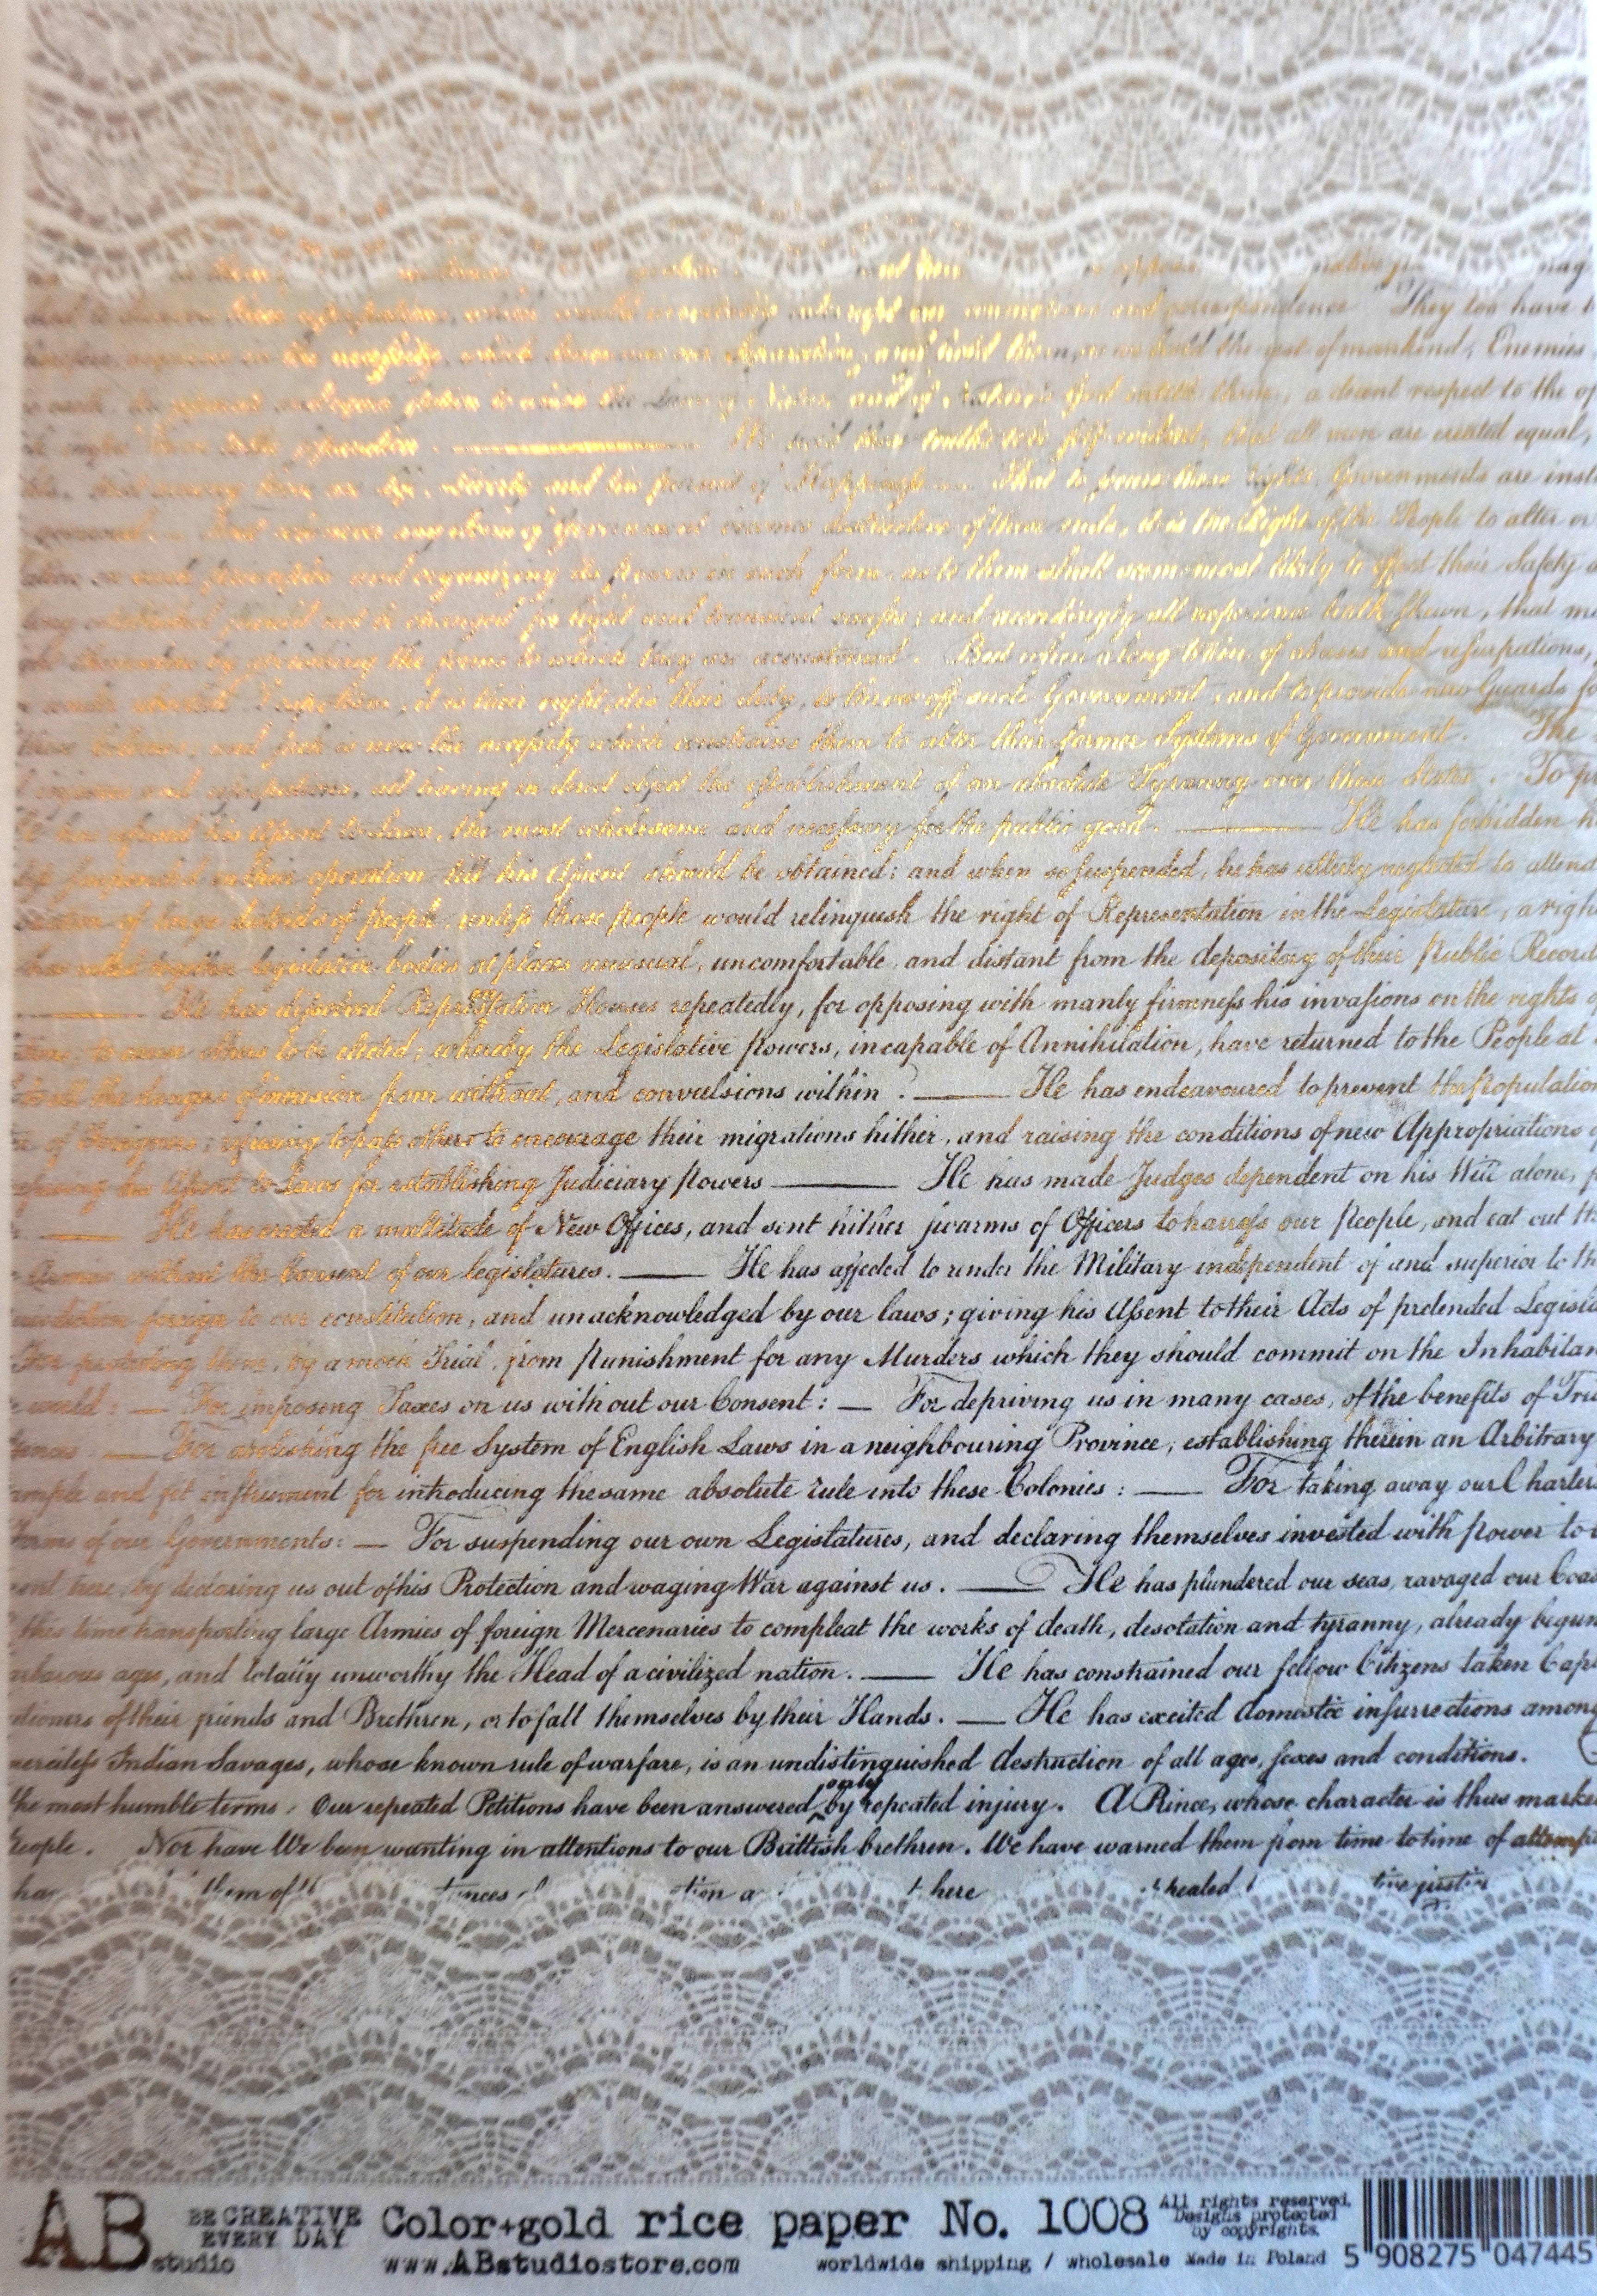 and them
and correspondence They too have
the necessity, which and hold them, as we hold the rest of mankind, Enemies
the Laws of Nature and of Nature's God entitle them, a decent respect to the
to the separation. We hold these truths to be self-evident, that all men are created equal,
that among these are Life, Liberty and the pursuit of Happiness That to secure these rights, Governments are
Government becomes destructive of these ends, it is the Right of the People to alter or
on such principles and organizing its powers in such form, as to them shall seem most likely to effect their Safety
long established should not be changed for light and transient causes; and accordingly all experience hath shewn, that
by abolishing the forms to which they are accustomed. But when a long train of abuses and usurpations,
Despotism, it is their right, it is their duty, to throw off such Government, and to provide new Guards
these Colonies; and such is now the necessity which constrains them to alter their former Systems of Government. The
injuries and usurpations, all having in direct object the establishment of an absolute Tyranny over these States. To
He has refused his Assent to Laws, the most wholesome and necessary for the public good. — He has forbidden
suspended in their operation till his Assent should be obtained; and when so suspended, he has utterly neglected to attend
of large districts of people, unless those people would relinquish the right of Representation in the Legislature, a
has called together legislative bodies at places unusual, uncomfortable, and distant from the depository of their Public Record
— He has dissolved Representative Houses repeatedly, for opposing with manly firmness his invasions on the rights
to cause others to be elected; whereby the Legislative Powers, incapable of Annihilation, have returned to the People at
to all the dangers of invasion from without, and convulsions within. — He has endeavoured to prevent the population
of Foreigners; refusing to pass others to encourage their migrations hither, and raising the conditions of new Appropriations
his Assent to Laws for establishing Judiciary Powers — He has made Judges dependent on his Will alone,
— He has erected a multitude of New Offices, and sent hither swarms of Officers to harrass our People, and eat out
Armies without the Consent of our legislatures. — He has affected to render the Military independent of and superior to
foreign to our constitution, and unacknowledged by our laws; giving his Assent to their Acts of pretended
For protecting them, by a mock Trial, from Punishment for any Murders which they should commit on the Inhabitan
world: — For imposing Taxes on us without our Consent: — For depriving us in many cases, of the benefits of
— For abolishing the free System of English Laws in a neighbouring Province, establishing therein an Arbitrary
and fit instrument for introducing the same absolute rule into these Colonies: — For taking away our Charters
Forms of our Governments: — For suspending our own Legislatures, and declaring themselves invested with Power to
here, by declaring us out of his Protection and waging War against us. — He has plundered our seas, ravaged our Coas
this time transporting large Armies of foreign Mercenaries to compleat the works of death, desolation and tyranny, already begun
ages, and totally unworthy the Head of a civilized nation. — He has constrained our fellow Citizens taken Cap
of their friends and Brethren, or to fall themselves by their Hands. — He has excited domestic insurrections among
Indian Savages, whose known rule of warfare, is an undistinguished destruction of all ages, sexes and conditions.
the most humble terms: Our repeated Petitions have been answered only by repeated injury. A Prince, whose character is thus marke
People. Nor have We been wanting in attentions to our Brittish brethren. We have warned them from time to time of attempt
them of tion a here healed
AB studio
BE CREATIVE EVERY DAY
Color+gold rice paper No. 1008
All rights reserved.
Designs protected
by copyrights.
www.ABstudiostore.com
worldwide shipping / wholesale Made in Poland
5 908275 047445